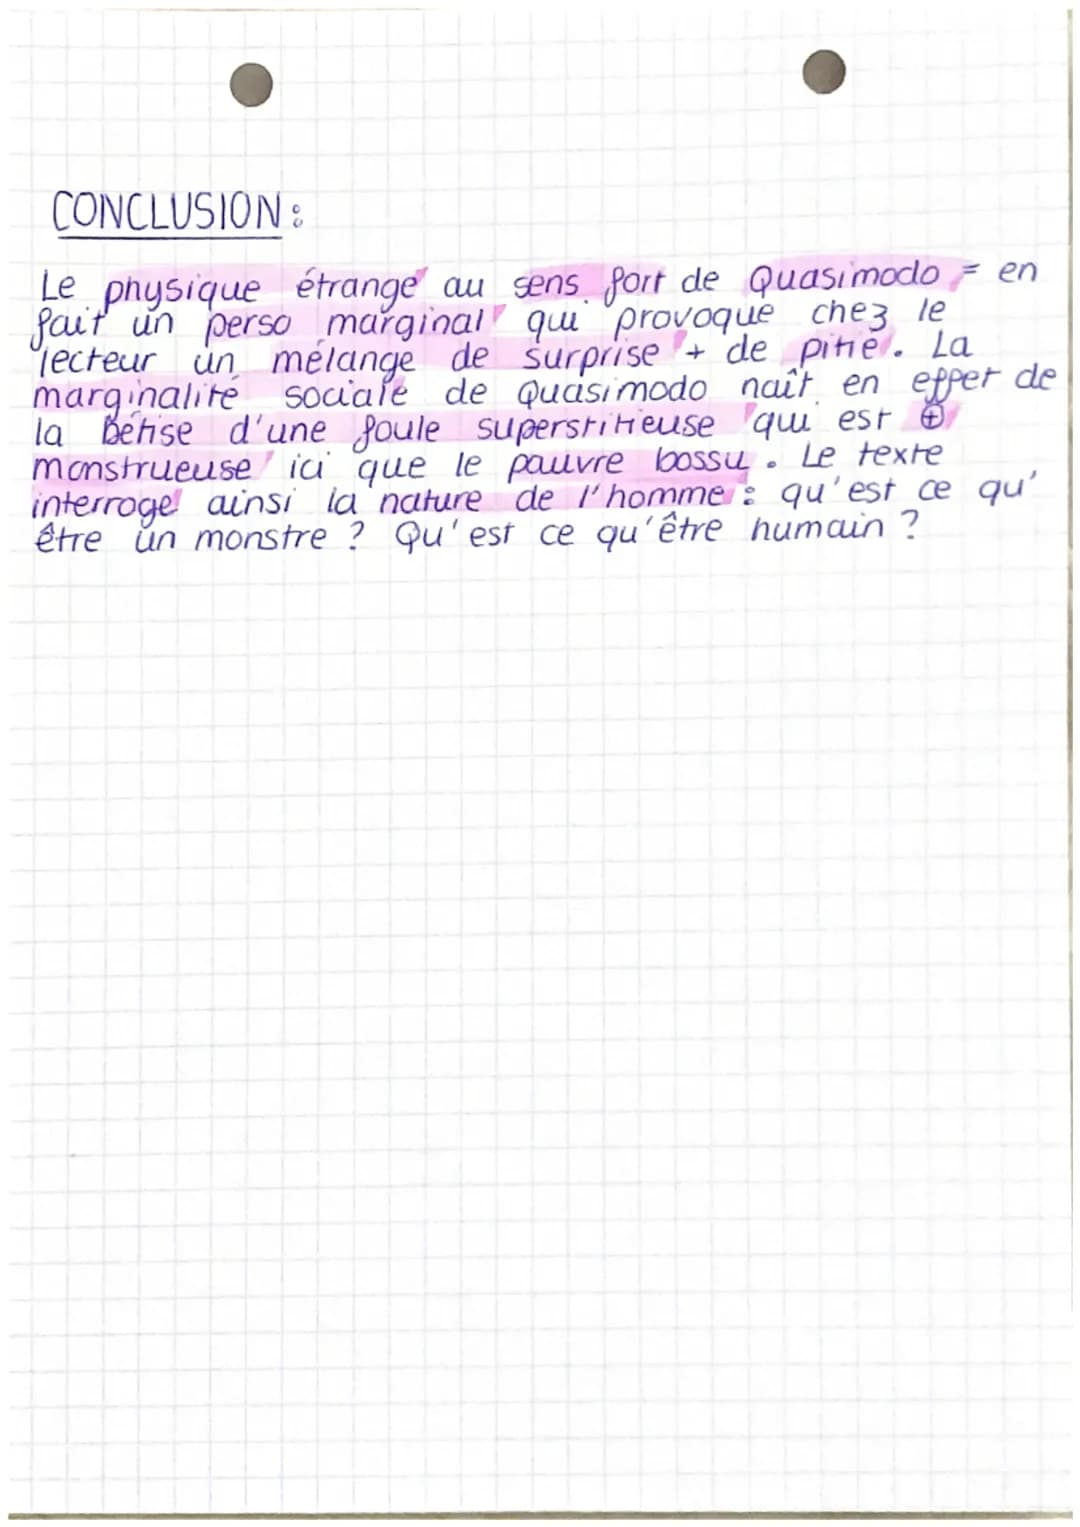 CONCLUSION :
Le physique étrange au sens fort de Quasimodo = en
fait un perso marginal qui provoque chez le
lecteur un mélange de surprise + de pitié. La
marginalité sociale de Quasimodo naît en effet de
la bêtise d'une foule superstitieuse qui est ⊕
monstrueuse ici que le pauvre bossu. Le texte
interroge ainsi la nature de l'homme : qu'est ce qu'
être un monstre ? Qu'est ce qu'être humain ?